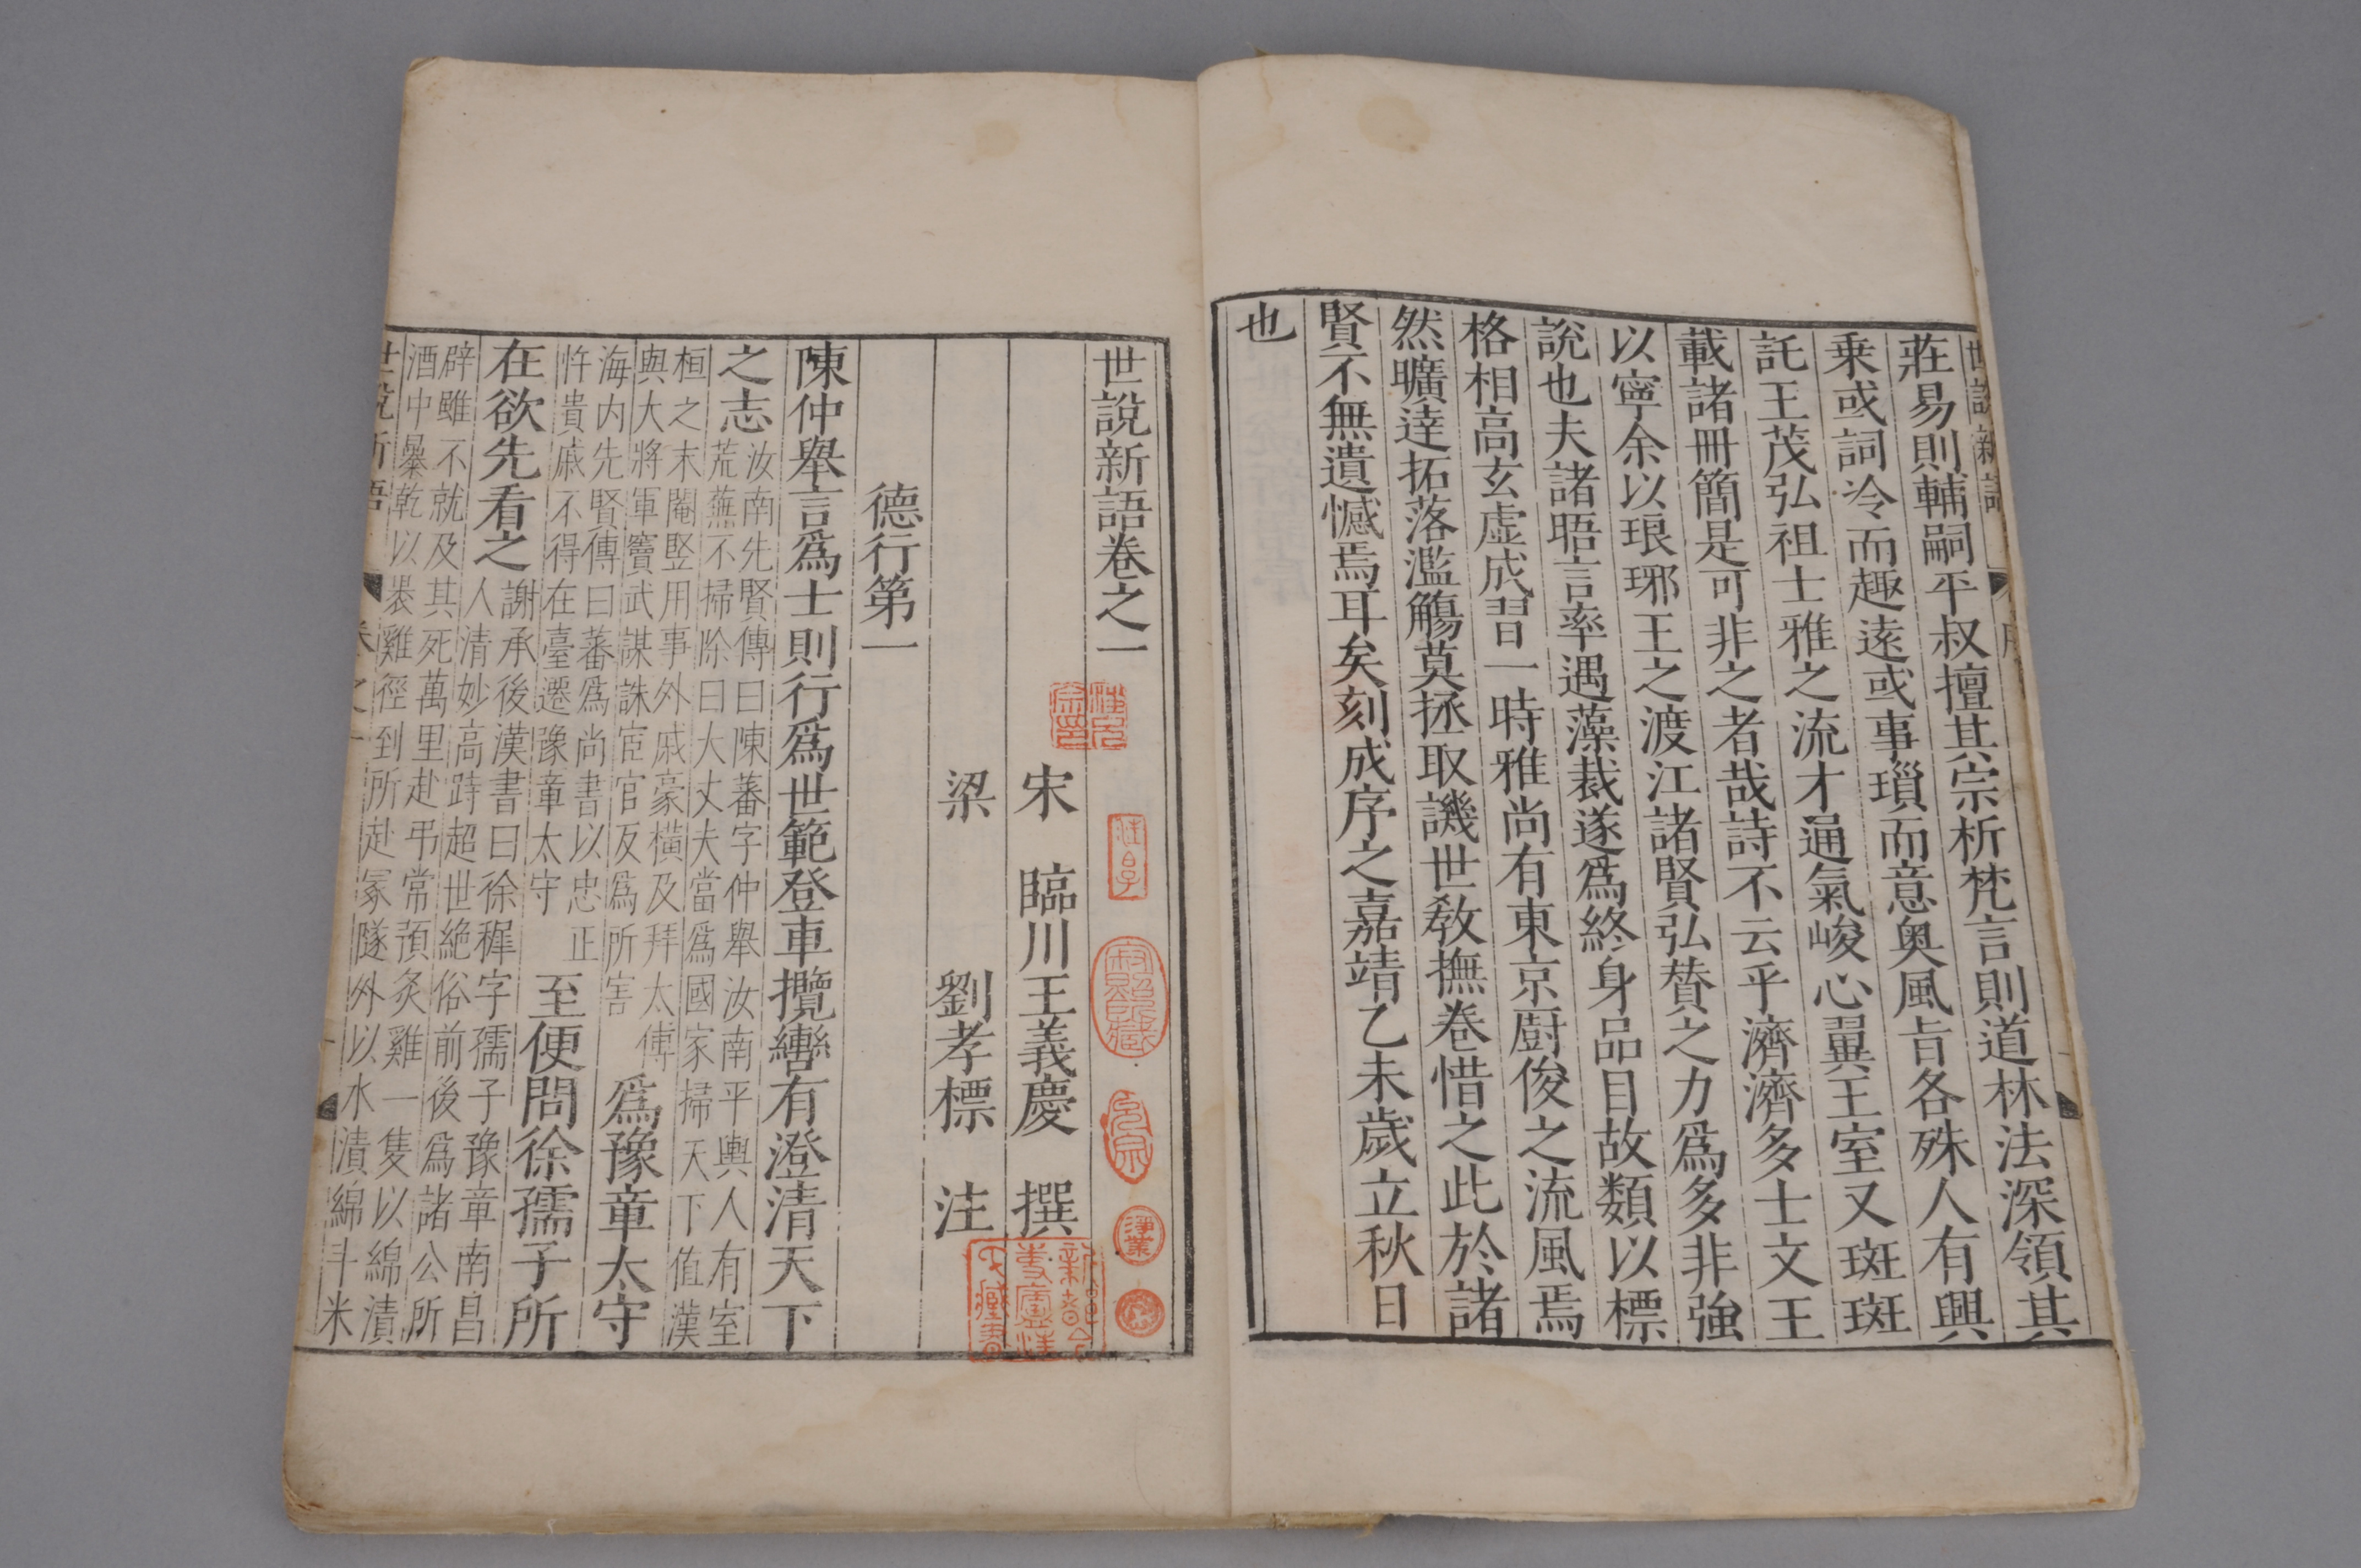 莊易則輔嗣平叔擅其宗析梵言則道林法深領其
乗或詞冷而趣逺或事瑣而意奥風㫖各殊人有興
託王茂弘祖士雅之流才通氣峻心翼王室又斑斑
載諸冊簡是可非之者哉詩不云乎濟濟多士文王
以寧余以琅琊王之渡江諸賢弘賛之力爲多非強
說也夫諸晤言率遇藻裁遂爲終身品目故類以標
格相高玄虛成習一時雅尚有東京廚俊之流風焉
然曠逹拓落濫觴莫拯取譏世敎撫巻惜之此於諸
賢不無遺憾焉耳矣刻成序之嘉靖乙未歲立秋日
也
世說新語卷之一
宋 臨川王義慶 撰
梁 劉孝標 注
德行第一
陳仲舉言爲士則行爲世範登車攬轡有澄清天下
之志
汝南先賢傳曰陳蕃字仲舉汝南平輿人有室
荒蕪不掃除曰大丈夫當爲國家掃天下值漢
桓之末閹竪用事外戚豪橫及拜太傅
與大將軍竇武謀誅宦官反爲所害
爲豫章太守
海内先賢傳曰蕃爲尚書以忠正
忤貴戚不得在臺遷豫章太守
至便問徐孺子所
在欲先看之
謝承後漢書曰徐穉字孺子豫章南昌
人清妙高跱超世絶俗前後爲諸公所
辟雖不就及其死萬里赴弔常預炙雞一隻以綿漬
酒中暴乾以裹雞徑到所赴冢隧外以水漬綿斗米
世說新語 卷之一